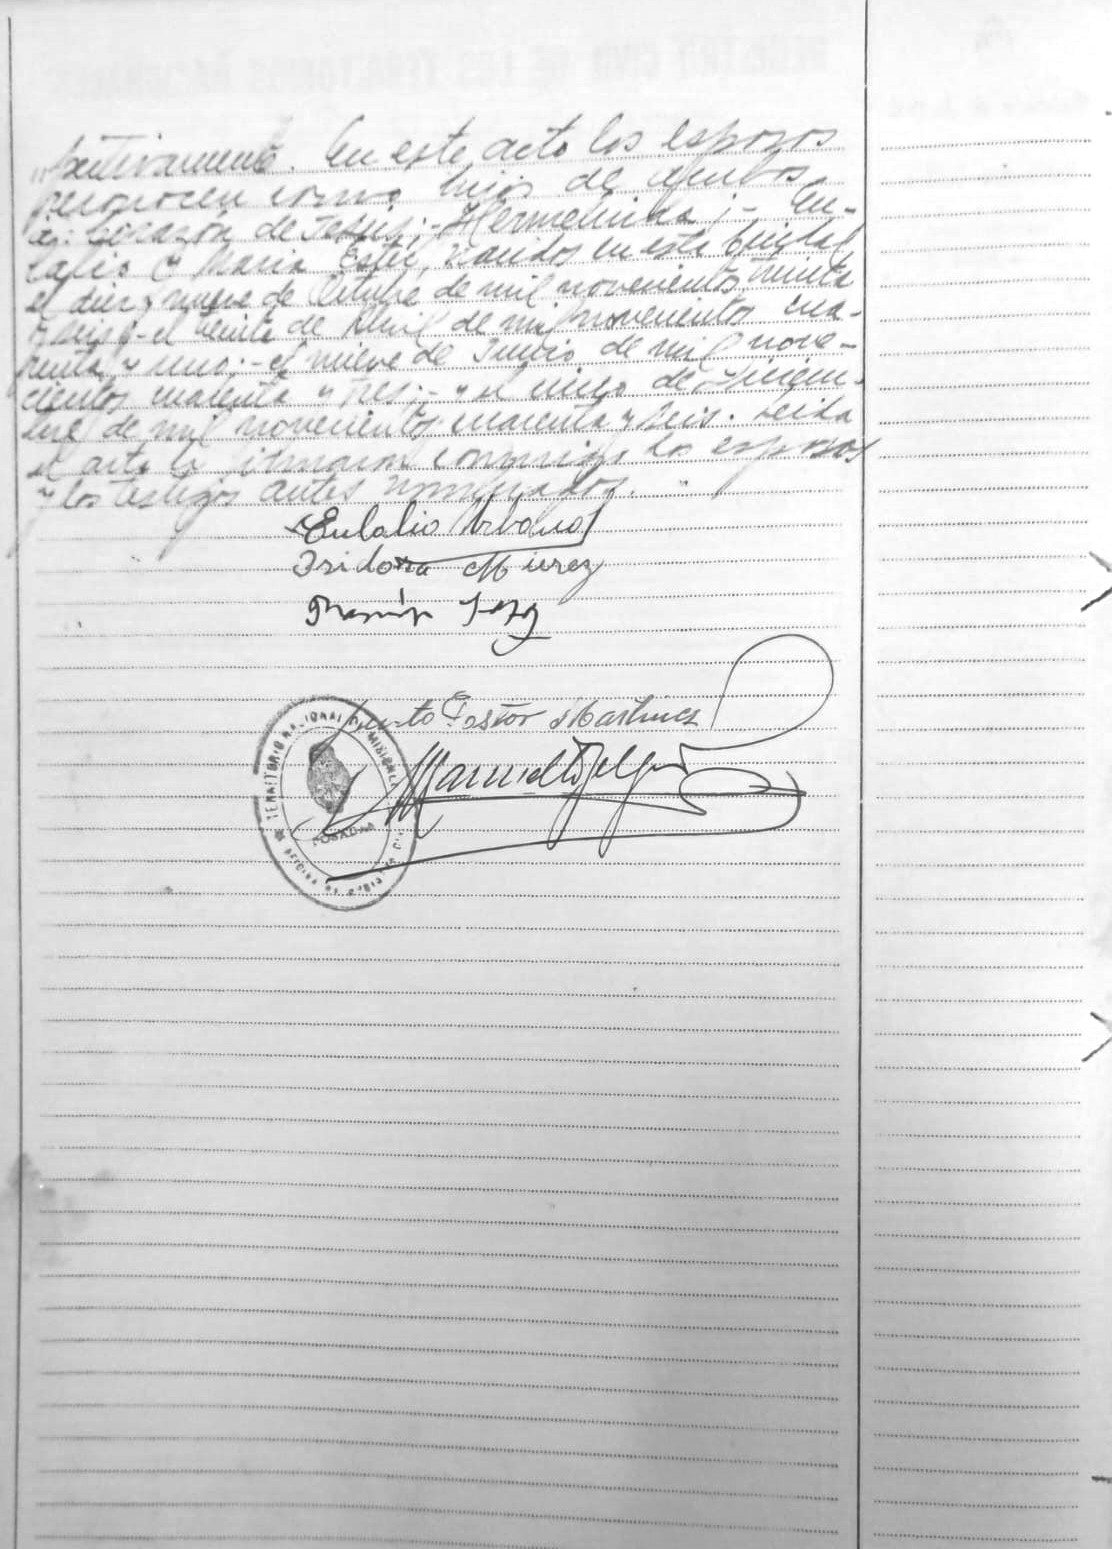 pectivamente. En este acto los esposos
reconocen como hijos de ambos
a: Corazón de Jesús;- Hermelinda;- Eu-
lalio y María Ester, nacidos en esta Capital
el diez y nueve de Octubre de mil novecientos treinta
y seis;- el veinte de Abril de mil novecientos cua-
renta y uno;- el nueve de Junio de mil nove-
cientos cuarenta y tres;- y el cinco de Diciem-
bre de mil novecientos cuarenta y seis. Leída
el acta la firmaron conmigo los esposos
y los testigos antes nombrados.
Eulalio Urbano
Isidora Mierez
Ramón
Pastor Martinez
TERRITORIO NACIONAL DE MISIONES
POSADAS